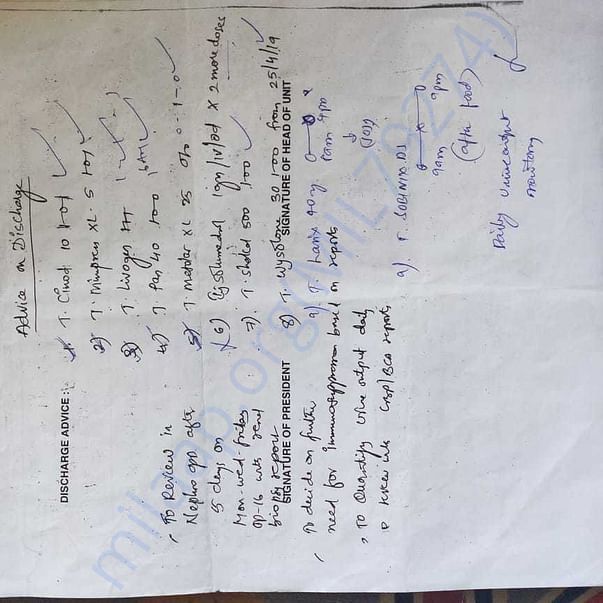 Advice on Discharge
DISCHARGE ADVICE :
1) T. Cinod 10 1-0-1
2) T. Minipress XL 5 1-0-1
3) T. Livogen
4) T. Pan 40 1-0-0
5) T. Metolar XL 25 0-1-0
6) 1gm/IV/OD X 2 more doses
7) T. Shelcal 500 1-0-0
8) T. Wysolone 30 1-0-0 from 25/4/19
SIGNATURE OF HEAD OF UNIT
9) T. Lasix 40mg
8am 4pm
9) T. SOBINIX DS
9am 9pm
(after food)
Daily urine output
monitoring
To Review in
Nephro OPD after
5 days on
Mon-Wed-Friday
OP-16 with renal
biopsy report
SIGNATURE OF PRESIDENT
To decide on further
need for immunosuppression based on reports
To Quantify urine output daily
reports
milaap.org(MIL79274)